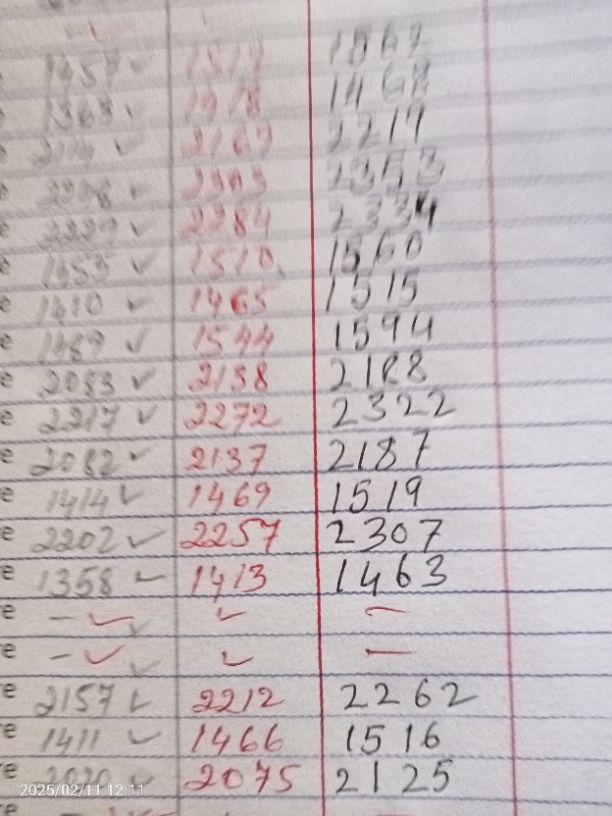 1567
1457 ✓ 1517 1468
1363 ✓ 1418 2217
2114 ✓ 2167 2353
2303 2334
2229 ✓ 2284 1560
1455 ✓ 1510 1515
1410 ✓ 1465 1594
1489 ✓ 1544
e 2083 ✓ 2138 2188
e 2217 ✓ 2272 2322
e 2082 ✓ 2137 2187
e 1414 ✓ 1469 1519
re 2202 ✓ 2257 2307
re 1358 ✓ 1413 1463
re - ✓ ✓ ✓ -
re - ✓ ✓ ✓ -
re 2157 ✓ 2212 2262
re 1411 ✓ 1466 1516
re 2020 ✓ 2075 2125
2025/02/11 12:11
re